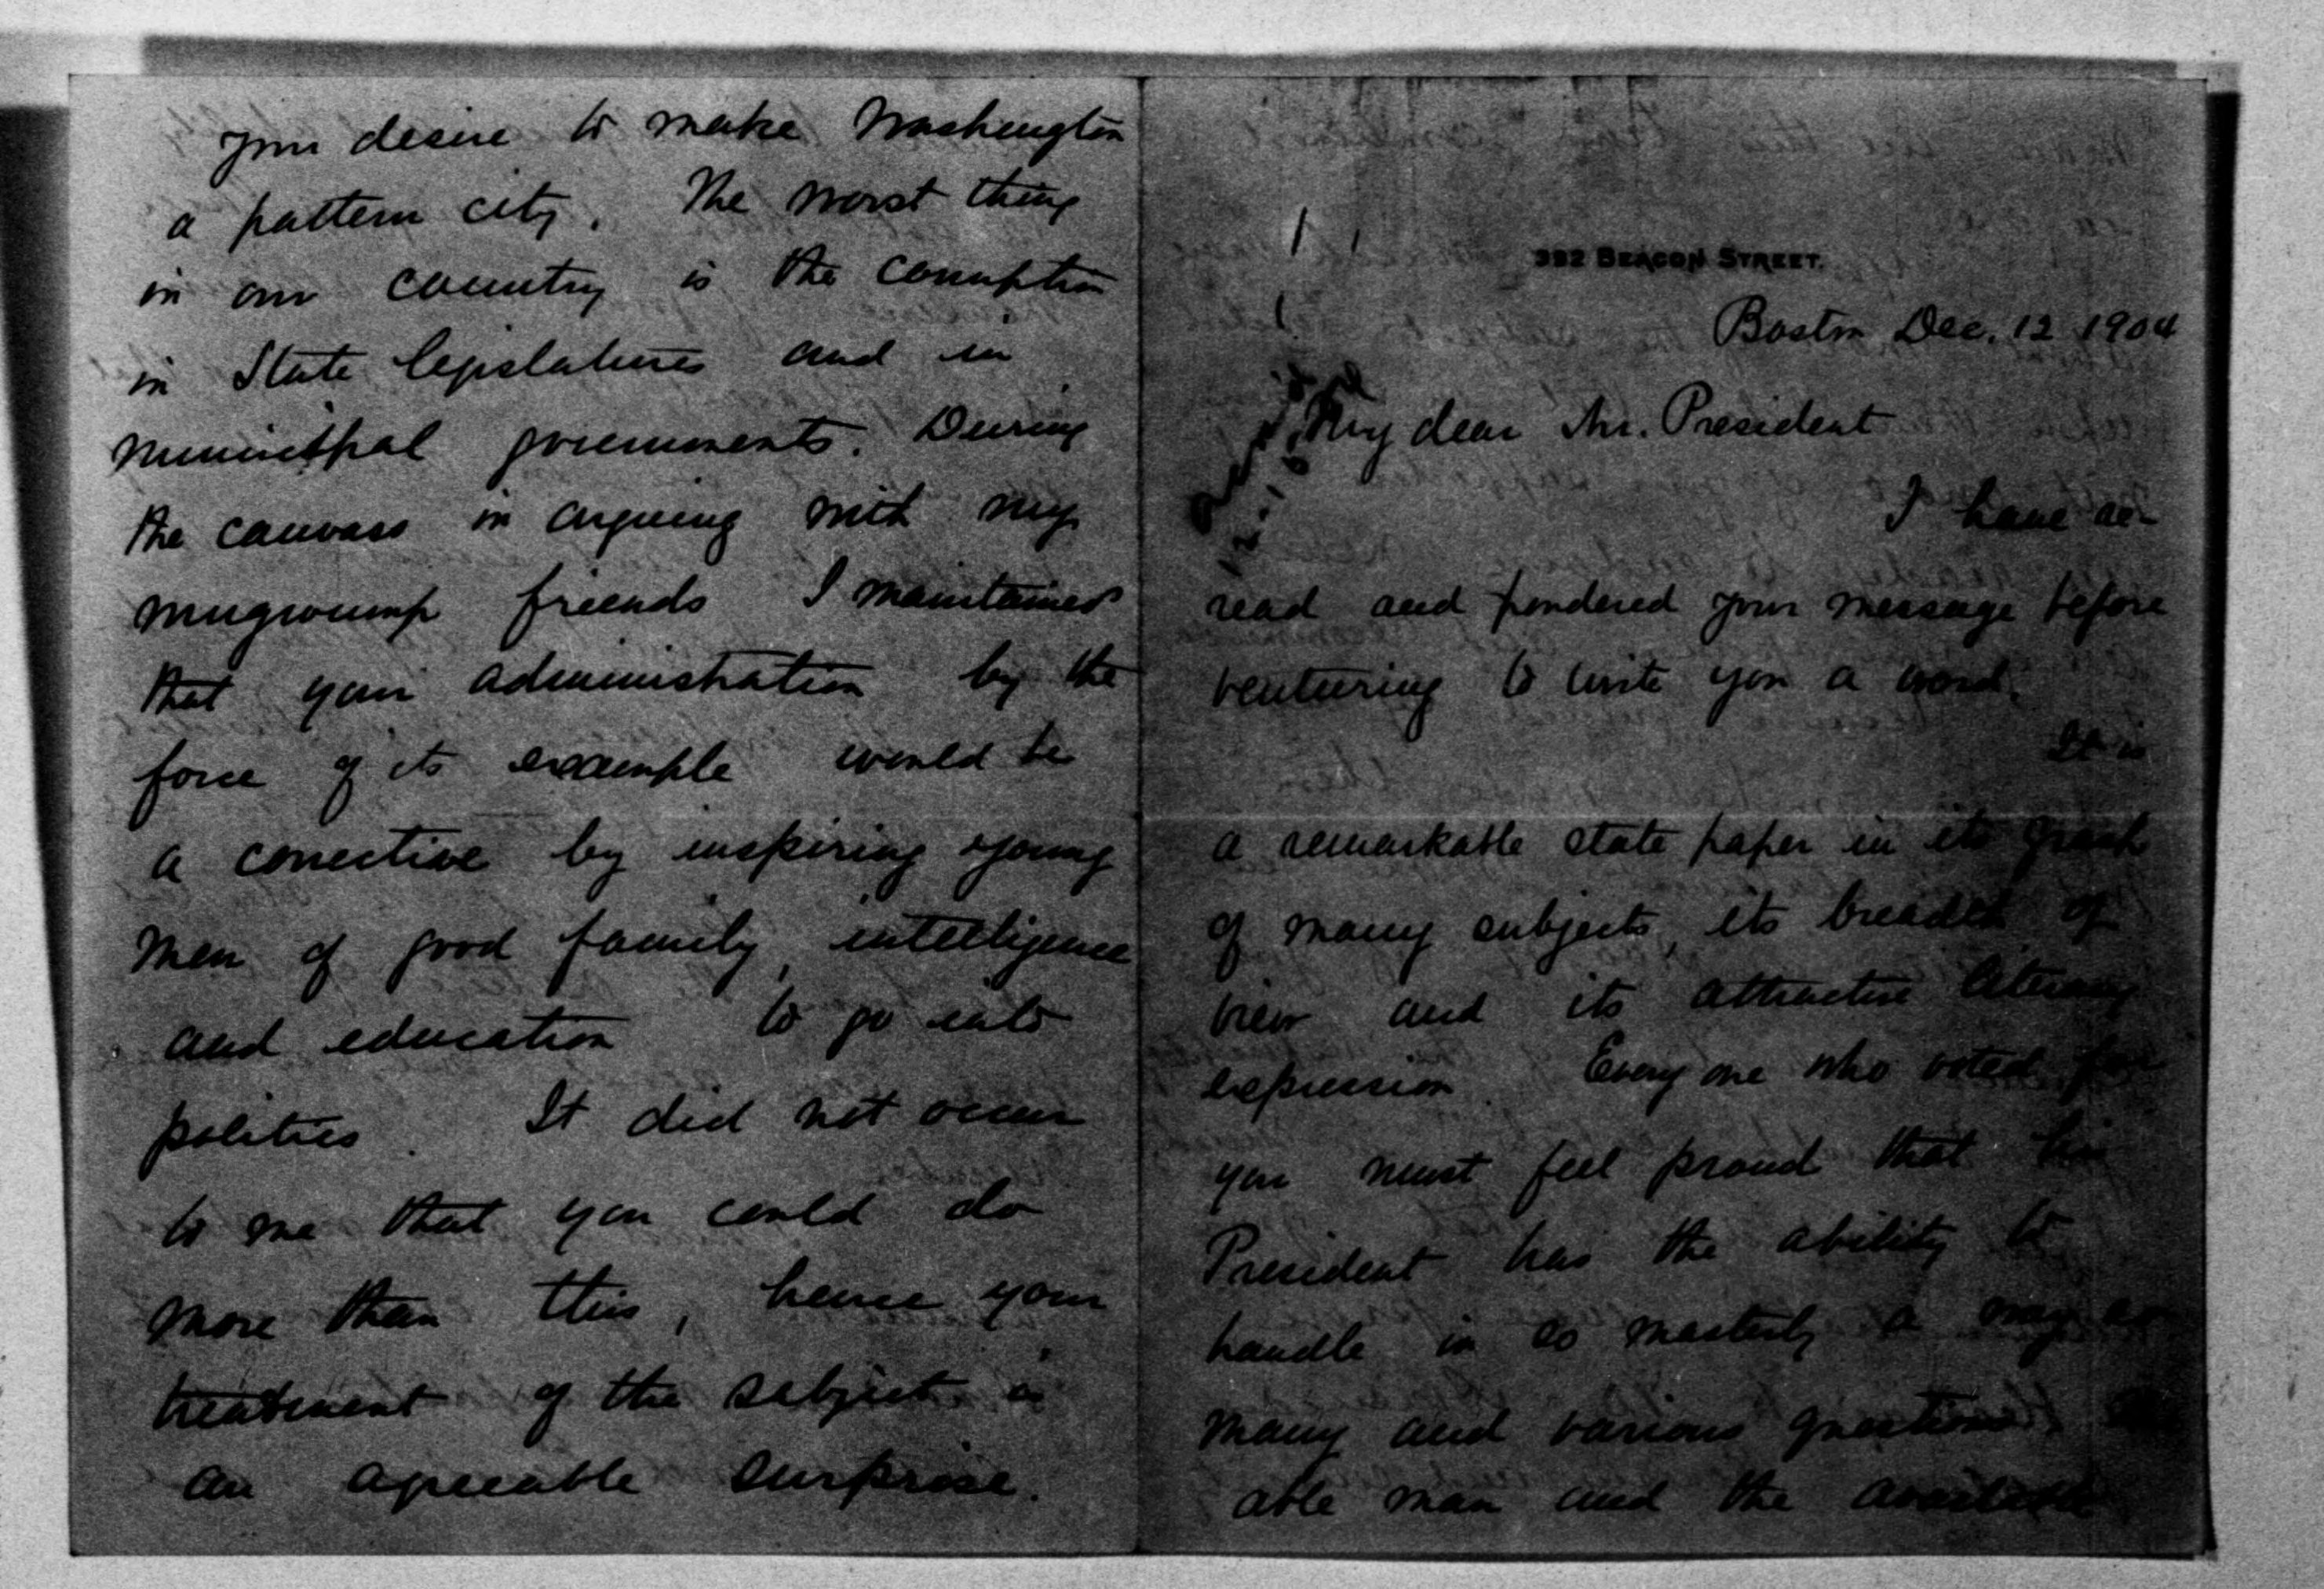 392 BEACON STREET.
Boston Dec. 12 1904
My dear Mr. President
I have re-
read and pondered your message before
venturing to write you a word.
It is
a remarkable state paper in its grasp
of many subjects, its breadth of
view and its attractive literary
expression. Every one who voted for
you must feel proud that his
President has the ability to
handle in so masterly a way so
many and various questions. The
able man and the available
your desire to make Washington
a pattern city. The worst thing
in our country is the corruption
in State legislatures and in
municipal governments. During
the canvass in arguing with my
mugwump friends I maintained
that your administration by the
force of its example would be
a corrective by inspiring young
men of good family, intelligence
and education to go into
politics. It did not occur
to me that you could do
more than this, hence your
treatment of the subject is
an agreeable surprise.